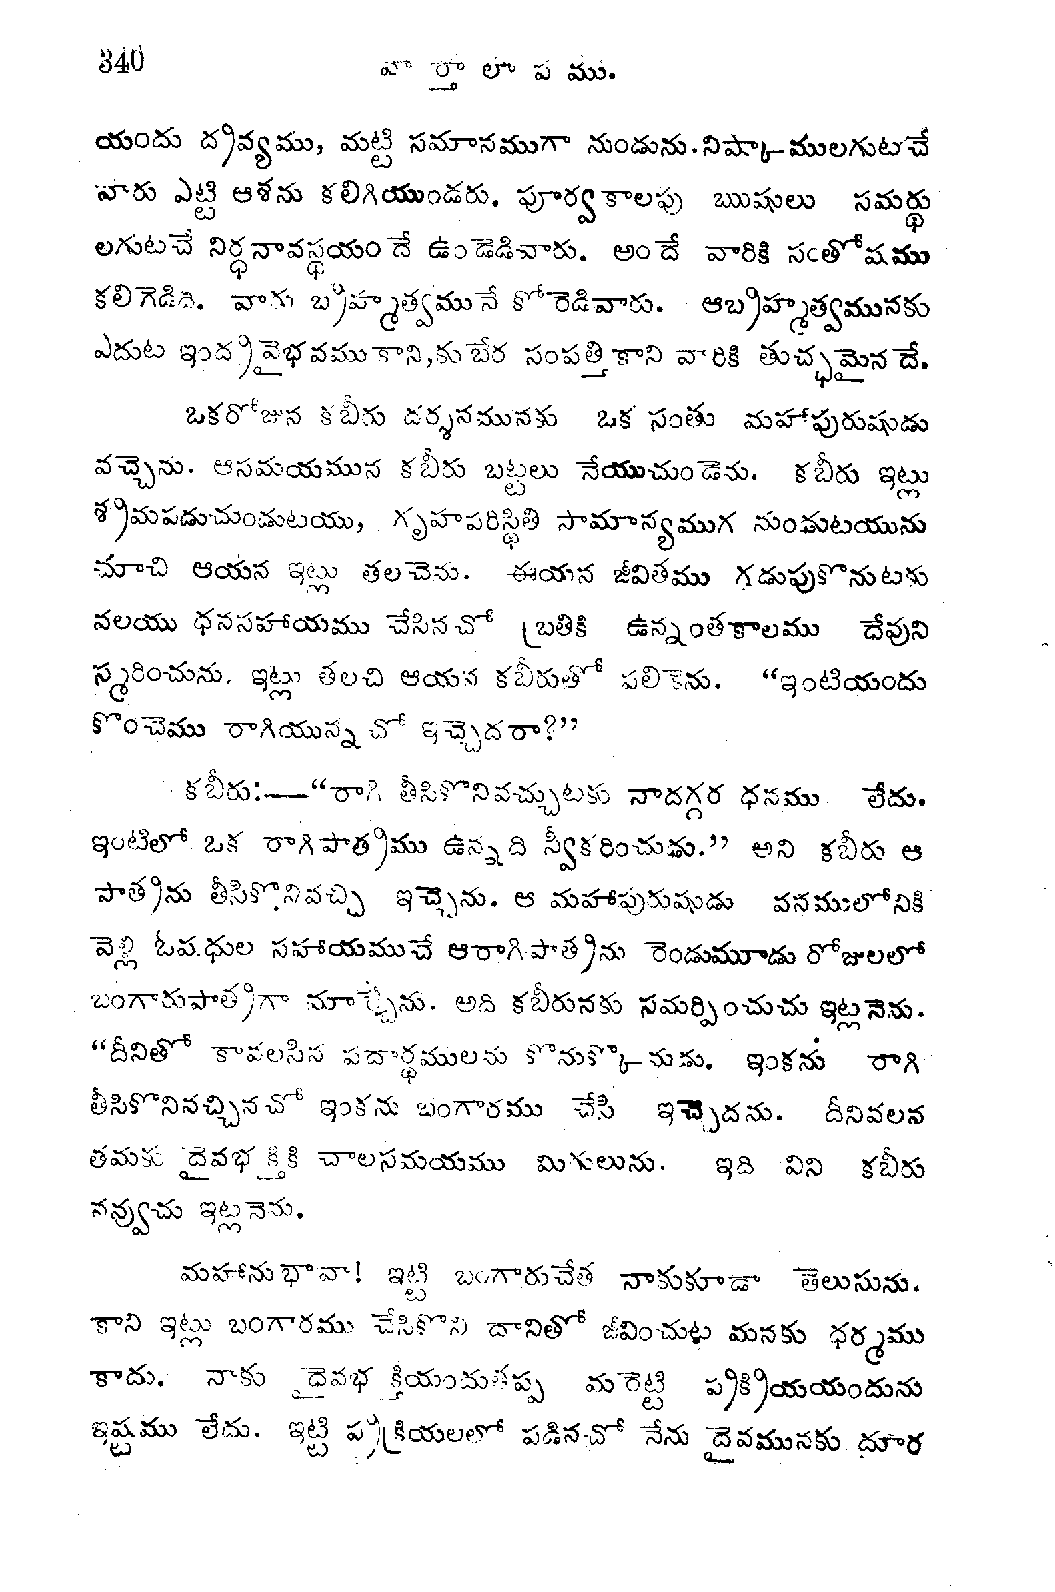 340
వార్తాలాపము.
యందు ద్రవ్యము, మట్టి సమానముగా నుండును. నిష్కాములగుటచే
వారు ఎట్టి ఆశను కలిగియుండరు. పూర్వకాలపు ఋషులు సమర్థు
లగుటచే నిర్ధనావస్థయందే ఉండెడివారు. అందే వారికి సంతోషము
కలిగెడిది. వారు బ్రాహ్మత్వమునే కోరెడివారు. ఆబ్రాహ్మత్వమునకు
ఎదుట ఇంద్రవైభవముకాని,కుబేర సంపత్తికాని వారికి తుచ్ఛమైనదే.
ఒకరోజున కబీరు దర్శనమునకు ఒక సంతు మహాపురుషుడు
వచ్చెను. ఆసమయమున కబీరు బట్టలు నేయుచుండెను. కబీరు ఇట్లు
శ్రమపడుచుండుటయు, గృహపరిస్థితి సామాన్యముగ నుండుటయును
చూచి ఆయన ఇట్లు తలచెను. ఈయన జీవితము గడుపుకొనుటకు
నలయు ధనసహాయము చేసినచో బ్రతికి ఉన్నంతకాలము దేవుని
స్మరించును. ఇట్లు తలచి ఆయన కబీరుతో పలికెను. “ఇంటియందు
కొంచెము రాగియున్నచో ఇచ్చెదరా?”
కబీరు:—“రాగి తీసికొనివచ్చుటకు నాదగ్గర ధనము లేదు.
ఇంటిలో ఒక రాగిపాత్రము ఉన్నది స్వీకరించుడు.” అని కబీరు ఆ
పాత్రను తీసికొనివచ్చి ఇచ్చెను. ఆ మహాపురుషుడు వనములోనికి
వెళ్లి ఓషధుల సహాయముచే ఆరాగిపాత్రను రెండుమూడు రోజులలో
బంగారుపాత్రగా మార్చెను. అది కబీరునకు సమర్పించుచు ఇట్లనెను.
“దీనితో కావలసిన పదార్థములను కొనుక్కొనుడు. ఇంకను రాగి
తీసికొనివచ్చినచో ఇంకను బంగారము చేసి ఇచ్చెదను. దీనివలన
తమకు దైవభక్తికి చాలసమయము మిగులును. ఇది విని కబీరు
నవ్వుచు ఇట్లనెను.
మహానుభావా! ఇట్టి బంగారుచేత నాకుకూడా తెలుసును.
కాని ఇట్లు బంగారము చేసికొని దానితో జీవించుట మనకు ధర్మము
కాదు. నాకు దైవభక్తియందుతప్ప మరెట్టి ప్రక్రియయందును
ఇష్టము లేదు. ఇట్టి ప్రక్రియలలో పడినచో నేను దైవమునకు దూర